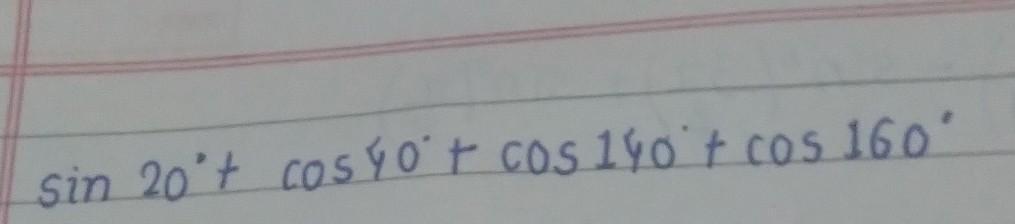 sin 20° + cos 40° + cos 140° + cos 160°